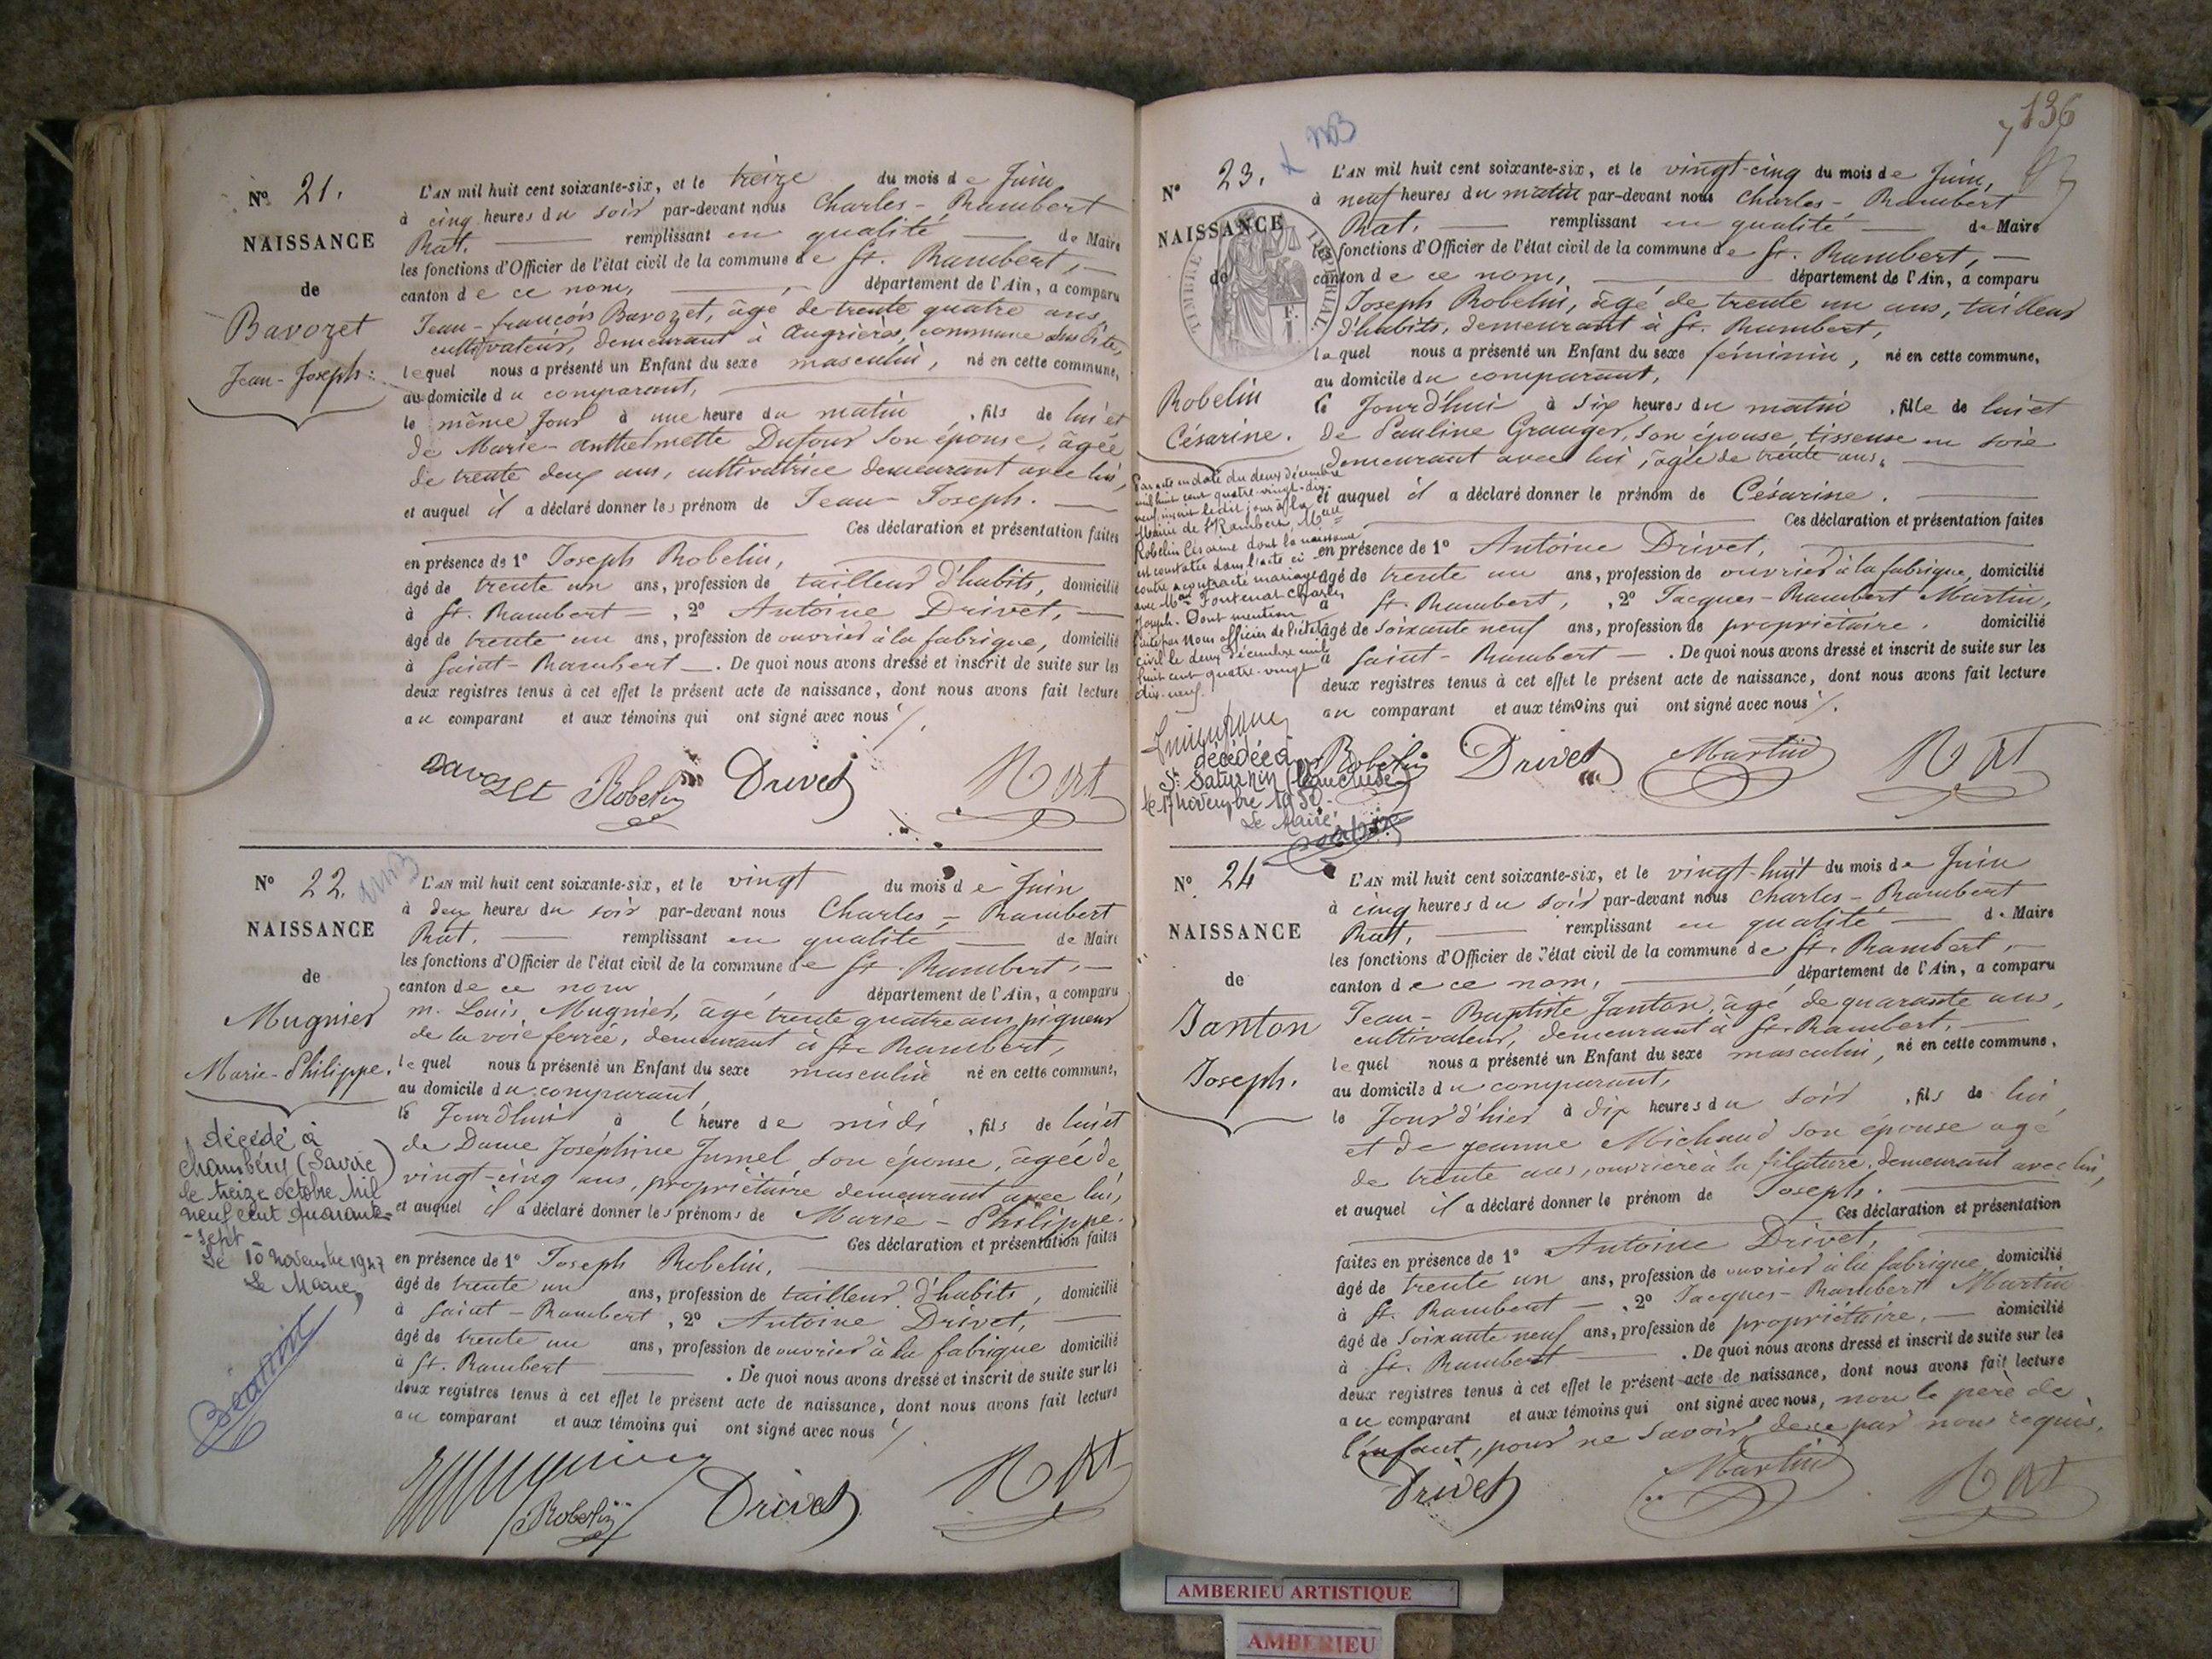 N° 21.
NAISSANCE
de
Bavozet
Jean-Joseph.
L'AN mil huit cent soixante-six, et le treize du mois de Juin
à cinq heures du soir par-devant nous Charles-Rambert
Rat. remplissant en qualité de Maire
les fonctions d'Officier de l'état civil de la commune de St. Rambert,
canton de ce nom, département de l'Ain, a comparu
Jean-françois Bavozet, âgé de trente quatre ans,
cultivateur, demeurant à Augrières, commune susdite,
lequel nous a présenté un Enfant du sexe masculin, né en cette commune,
au domicile du comparant,
le même jour à une heure du matin, fils de lui et
de Marie-Anthelmette Dufour son épouse, âgée
de trente deux ans, cultivatrice demeurant avec lui,
et auquel il a déclaré donner les prénom de Jean-Joseph.
Ces déclaration et présentation faites
en présence de 1° Joseph Robelin,
âgé de trente un ans, profession de tailleur d'habits, domicilié
à St. Rambert, 2° Antoine Drivet,
âgé de trente un ans, profession de ouvrier à la fabrique, domicilié
à Saint-Rambert. De quoi nous avons dressé et inscrit de suite sur les
deux registres tenus à cet effet le présent acte de naissance, dont nous avons fait lecture
au comparant et aux témoins qui ont signé avec nous /.
Bavozet Robelin Drivet Rat
N° 22.
NAISSANCE
de
Mugnier
Marie-Philippe.
décédé à
Chambéry (Savoie)
le treize octobre mil
neuf cent quarante
-sept
Le 10 novembre 1947
Le Maire,
L'AN mil huit cent soixante-six, et le vingt du mois de Juin
à deux heures du soir par-devant nous Charles-Rambert
Rat. remplissant en qualité de Maire
les fonctions d'Officier de l'état civil de la commune de St. Rambert,
canton de ce nom, département de l'Ain, a comparu
m. Louis Mugnier, âgé trente quatre ans piqueur
de la voie ferrée, demeurant à St. Rambert,
lequel nous a présenté un Enfant du sexe masculin né en cette commune,
au domicile du comparant
le Jourd'hui à l'heure de midi, fils de lui et
de Dame Joséphine Jumel, son épouse, âgée de
vingt-cinq ans, propriétaire demeurant avec lui,
et auquel il a déclaré donner les prénoms de Marie-Philippe.
Ces déclaration et présentation faites
en présence de 1° Joseph Robelin,
âgé de trente un ans, profession de tailleur d'habits, domicilié
à Saint-Rambert, 2° Antoine Drivet,
âgé de trente un ans, profession de ouvrier à la fabrique domicilié
à St. Rambert. De quoi nous avons dressé et inscrit de suite sur les
deux registres tenus à cet effet le présent acte de naissance, dont nous avons fait lecture
au comparant et aux témoins qui ont signé avec nous /.
Mugnier Robelin Drivet Rat
136
N° 23.
NAISSANCE
de
TIMBRE IMPERIAL
Robelin
Césarine.
Par acte en date du deux décembre
mil huit cent quatre-vingt-dix-
neuf inscrit ledit jour à la
Mairie de St Rambert, Melle
Robelin Césarine dont la naissance
est constatée dans l'acte ci
contre a contracté mariage
avec Mr Fontenat Charles
Joseph. Dont mention
faite par Nous officier de l'état
civil le deux décembre mil
huit cent quatre-vingt
dix-neuf.
décédée à
St Saturnin (Vaucluse)
le 17 novembre 1950.
Le Maire
L'AN mil huit cent soixante-six, et le vingt-cinq du mois de Juin,
à neuf heures du matin par-devant nous Charles-Rambert
Rat. remplissant en qualité de Maire
les fonctions d'Officier de l'état civil de la commune de St. Rambert,
canton de ce nom, département de l'Ain, a comparu
Joseph Robelin, âgé de trente un ans, tailleur
d'habits, demeurant à St. Rambert,
lequel nous a présenté un Enfant du sexe féminin, né en cette commune,
au domicile du comparant,
le Jourd'hui à six heures du matin, fille de lui et
de Pauline Granger, son épouse, tisseuse en soie
demeurant avec lui, âgée de trente ans.
et auquel il a déclaré donner le prénom de Césarine.
Ces déclaration et présentation faites
en présence de 1° Antoine Drivet,
âgé de trente un ans, profession de ouvrier à la fabrique, domicilié
à St. Rambert, 2° Jacques-Rambert Martin,
âgé de soixante neuf ans, profession de propriétaire. domicilié
à Saint-Rambert. De quoi nous avons dressé et inscrit de suite sur les
deux registres tenus à cet effet le présent acte de naissance, dont nous avons fait lecture
au comparant et aux témoins qui ont signé avec nous /.
Robelin Drivet Martin Rat
N° 24
NAISSANCE
de
Janton
Joseph.
L'AN mil huit cent soixante-six, et le vingt-huit du mois de Juin
à cinq heures du soir par-devant nous Charles-Rambert
Rat, remplissant en qualité de Maire
les fonctions d'Officier de l'état civil de la commune de St. Rambert,
canton de ce nom, département de l'Ain, a comparu
Jean-Baptiste Janton, âgé de quarante ans,
cultivateur, demeurant à St. Rambert,
lequel nous a présenté un Enfant du sexe masculin, né en cette commune,
au domicile du comparant,
le Jour d'hier à dix heures du soir, fils de lui,
et de jeanne Michaud son épouse âgé
de trente ans, ouvrière à la filature, demeurant avec lui,
et auquel il a déclaré donner le prénom de Joseph.
Ces déclaration et présentation
faites en présence de 1° Antoine Drivet,
âgé de trente un ans, profession de ouvrier à la fabrique domicilié
à St. Rambert, 2° Jacques-Rambert Martin
âgé de soixante neuf ans, profession de propriétaire, domicilié
à St. Rambert. De quoi nous avons dressé et inscrit de suite sur les
deux registres tenus à cet effet le présent acte de naissance, dont nous avons fait lecture
au comparant et aux témoins qui ont signé avec nous, non le père de
l'enfant, pour ne savoir, de ce par nous requis.
Drivet Martin Rat
AMBERIEU ARTISTIQUE
AMBERIEU